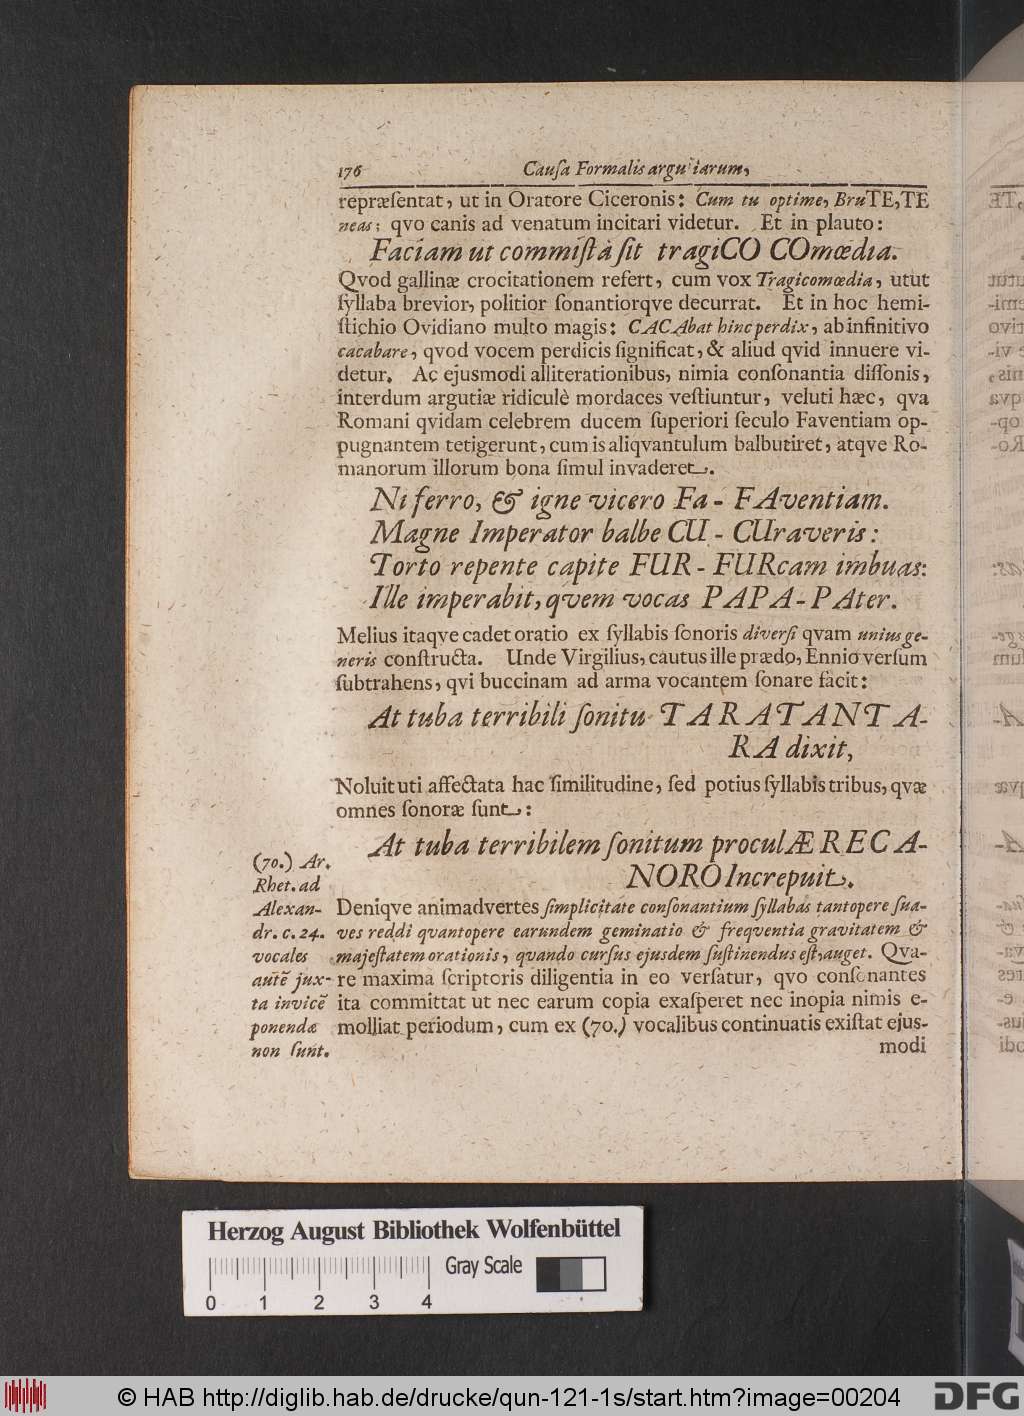 176 Cauſa Formalis argutiarum,
repræſentat, ut in Oratore Ciceronis: Cum tu optime, BruTE,TE
neas: qvo canis ad venatum incitari videtur. Et in plauto:
Faciam ut commiſtà ſit tragiCO COmœdia.
Qvod gallinæ crocitationem refert, cum vox Tragicomœdia, utut
ſyllaba brevior, politior ſonantiorqve decurrat. Et in hoc hemi-
ſtichio Ovidiano multo magis: CACAbat hinc perdix, ab infinitivo
cacabare, qvod vocem perdicis ſignificat, & aliud qvid innuere vi-
detur. Ac ejusmodi alliterationibus, nimia conſonantia diſſonis,
interdum argutiæ ridiculè mordaces veſtiuntur, veluti hæc, qva
Romani qvidam celebrem ducem ſuperiori ſeculo Faventiam op-
pugnantem tetigerunt, cum is aliqvantulum balbutiret, atqve Ro-
manorum illorum bona ſimul invaderet.
Ni ferro, & igne vicero Fa - FAventiam.
Magne Imperator balbe CU - CUraveris:
Torto repente capite FUR - FURcam imbuas:
Ille imperabit, qvem vocas PAPA-PAter.
Melius itaqve cadet oratio ex ſyllabis ſonoris diverſi qvam unius ge-
neris conſtructa. Unde Virgilius, cautus ille prædo, Ennio verſum
ſubtrahens, qvi buccinam ad arma vocantem ſonare facit:
At tuba terribili ſonitu TARATANTA-
RA dixit,
Noluit uti affectata hac ſimilitudine, ſed potius ſyllabis tribus, qvæ
omnes ſonoræ ſunt:
At tuba terribilem ſonitum procul ÆRE CA-
NORO Increpuit.
Deniqve animadvertes ſimplicitate conſonantium ſyllabas tantopere ſua-
ves reddi qvantopere earundem geminatio & freqventia gravitatem &
majeſtatem orationis, quando curſus ejusdem ſuſtinendus eſt, auget. Qva-
re maxima ſcriptoris diligentia in eo verſatur, qvo conſonantes
ita committat ut nec earum copia exaſperet nec inopia nimis e-
molliat periodum, cum ex (70.) vocalibus continuatis exiſtat ejus-
modi
(70.) Ar.
Rhet. ad
Alexan-
dr. c. 24.
vocales
autē jux-
ta invicē
ponendæ
non ſunt.
Herzog August Bibliothek Wolfenbüttel
Gray Scale
0 1 2 3 4
© HAB http://diglib.hab.de/drucke/qun-121-1s/start.htm?image=00204
DFG